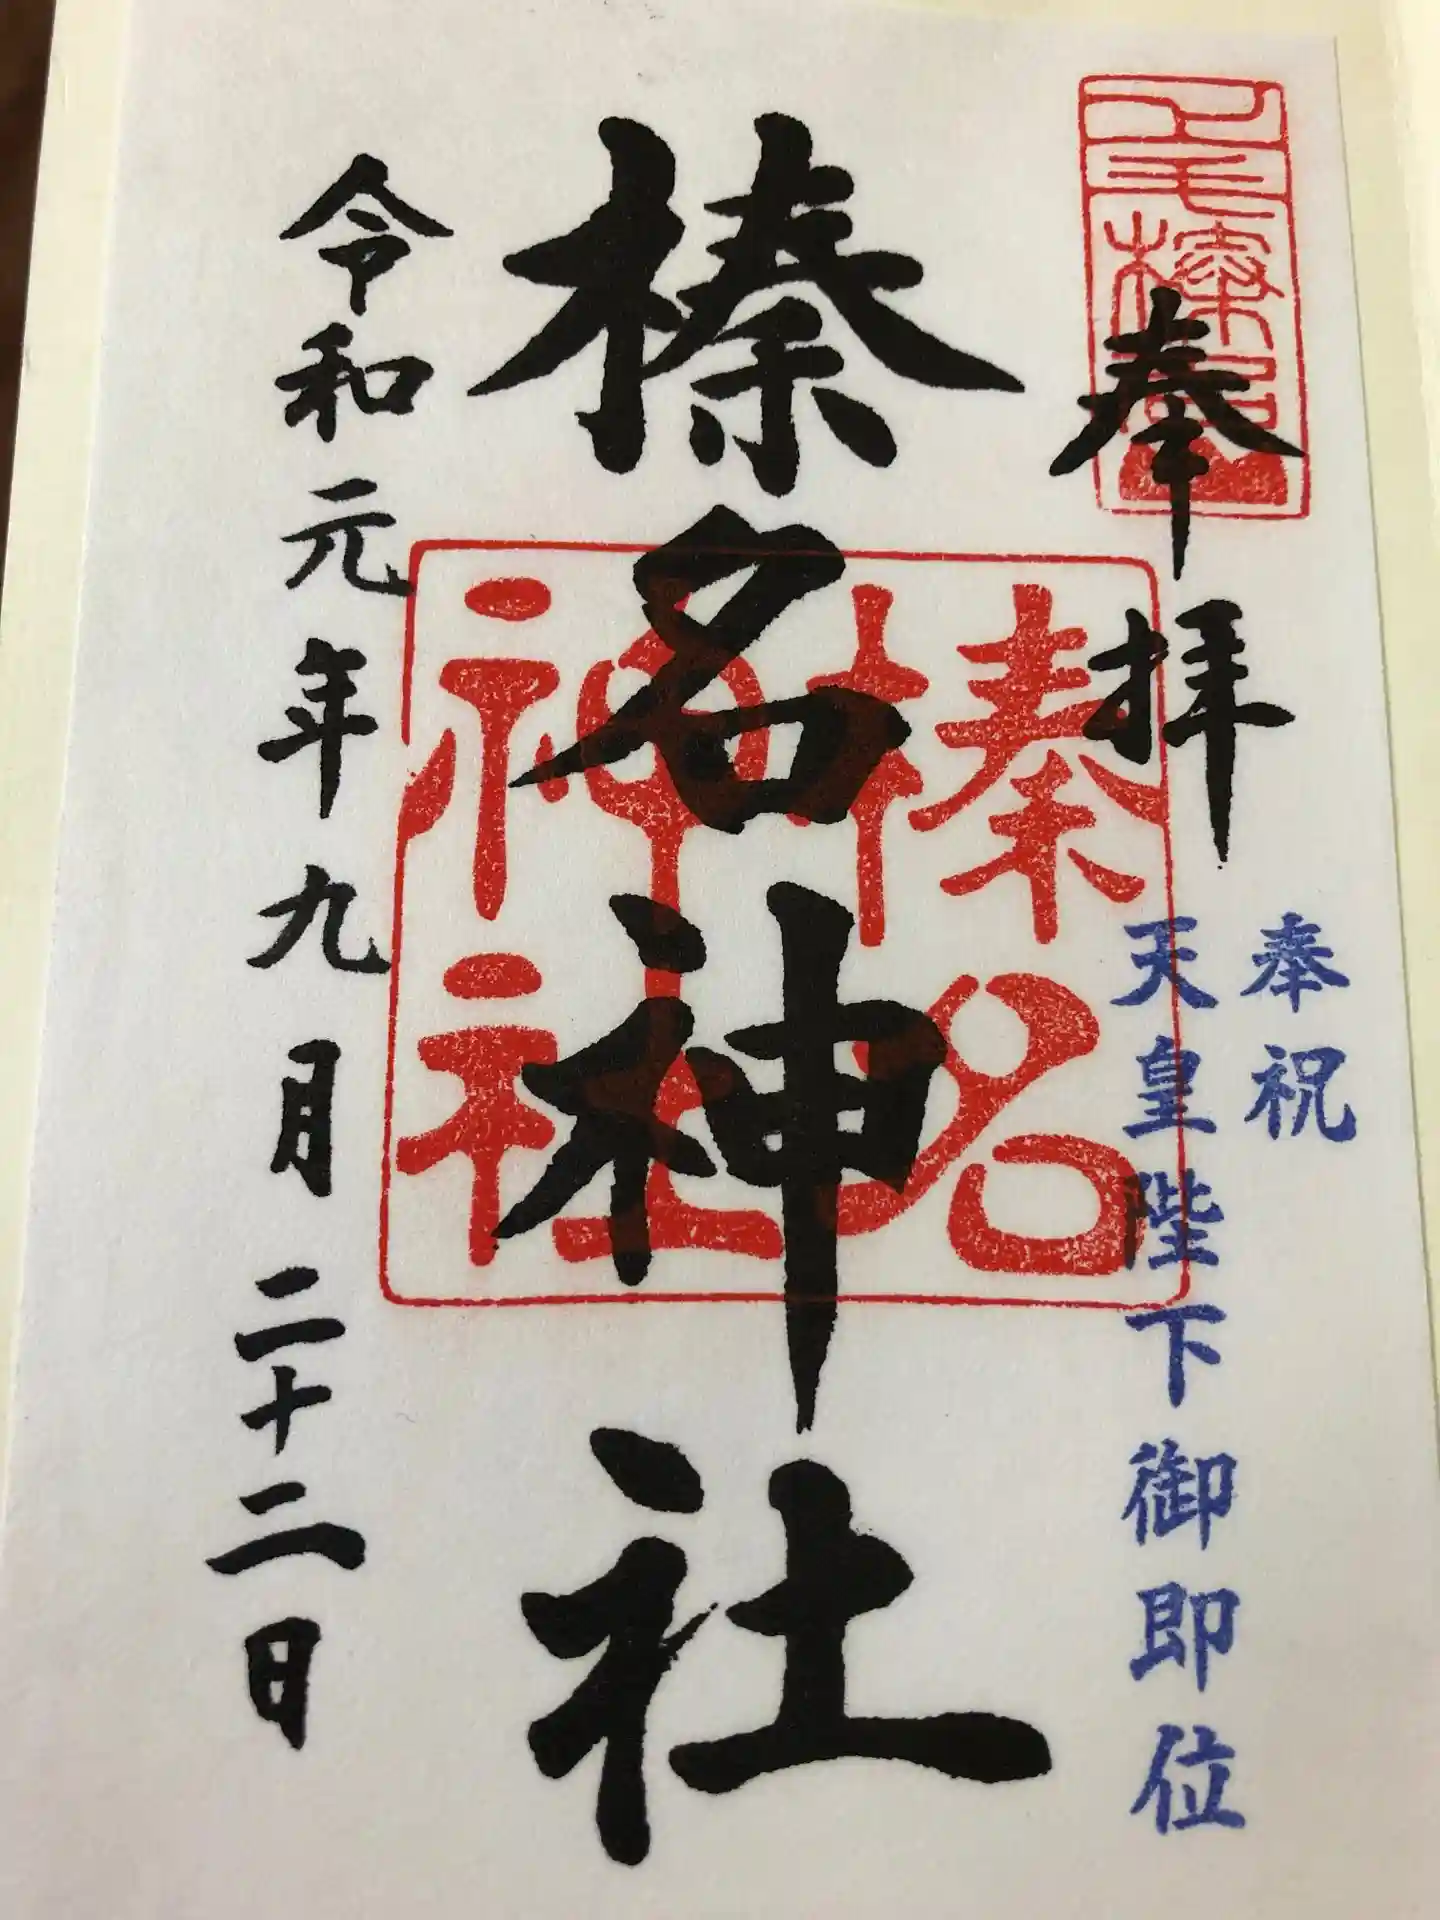 奉拝
奉祝
天皇陛下御即位
榛名神社
榛名
神社
令和元年九月二十二日